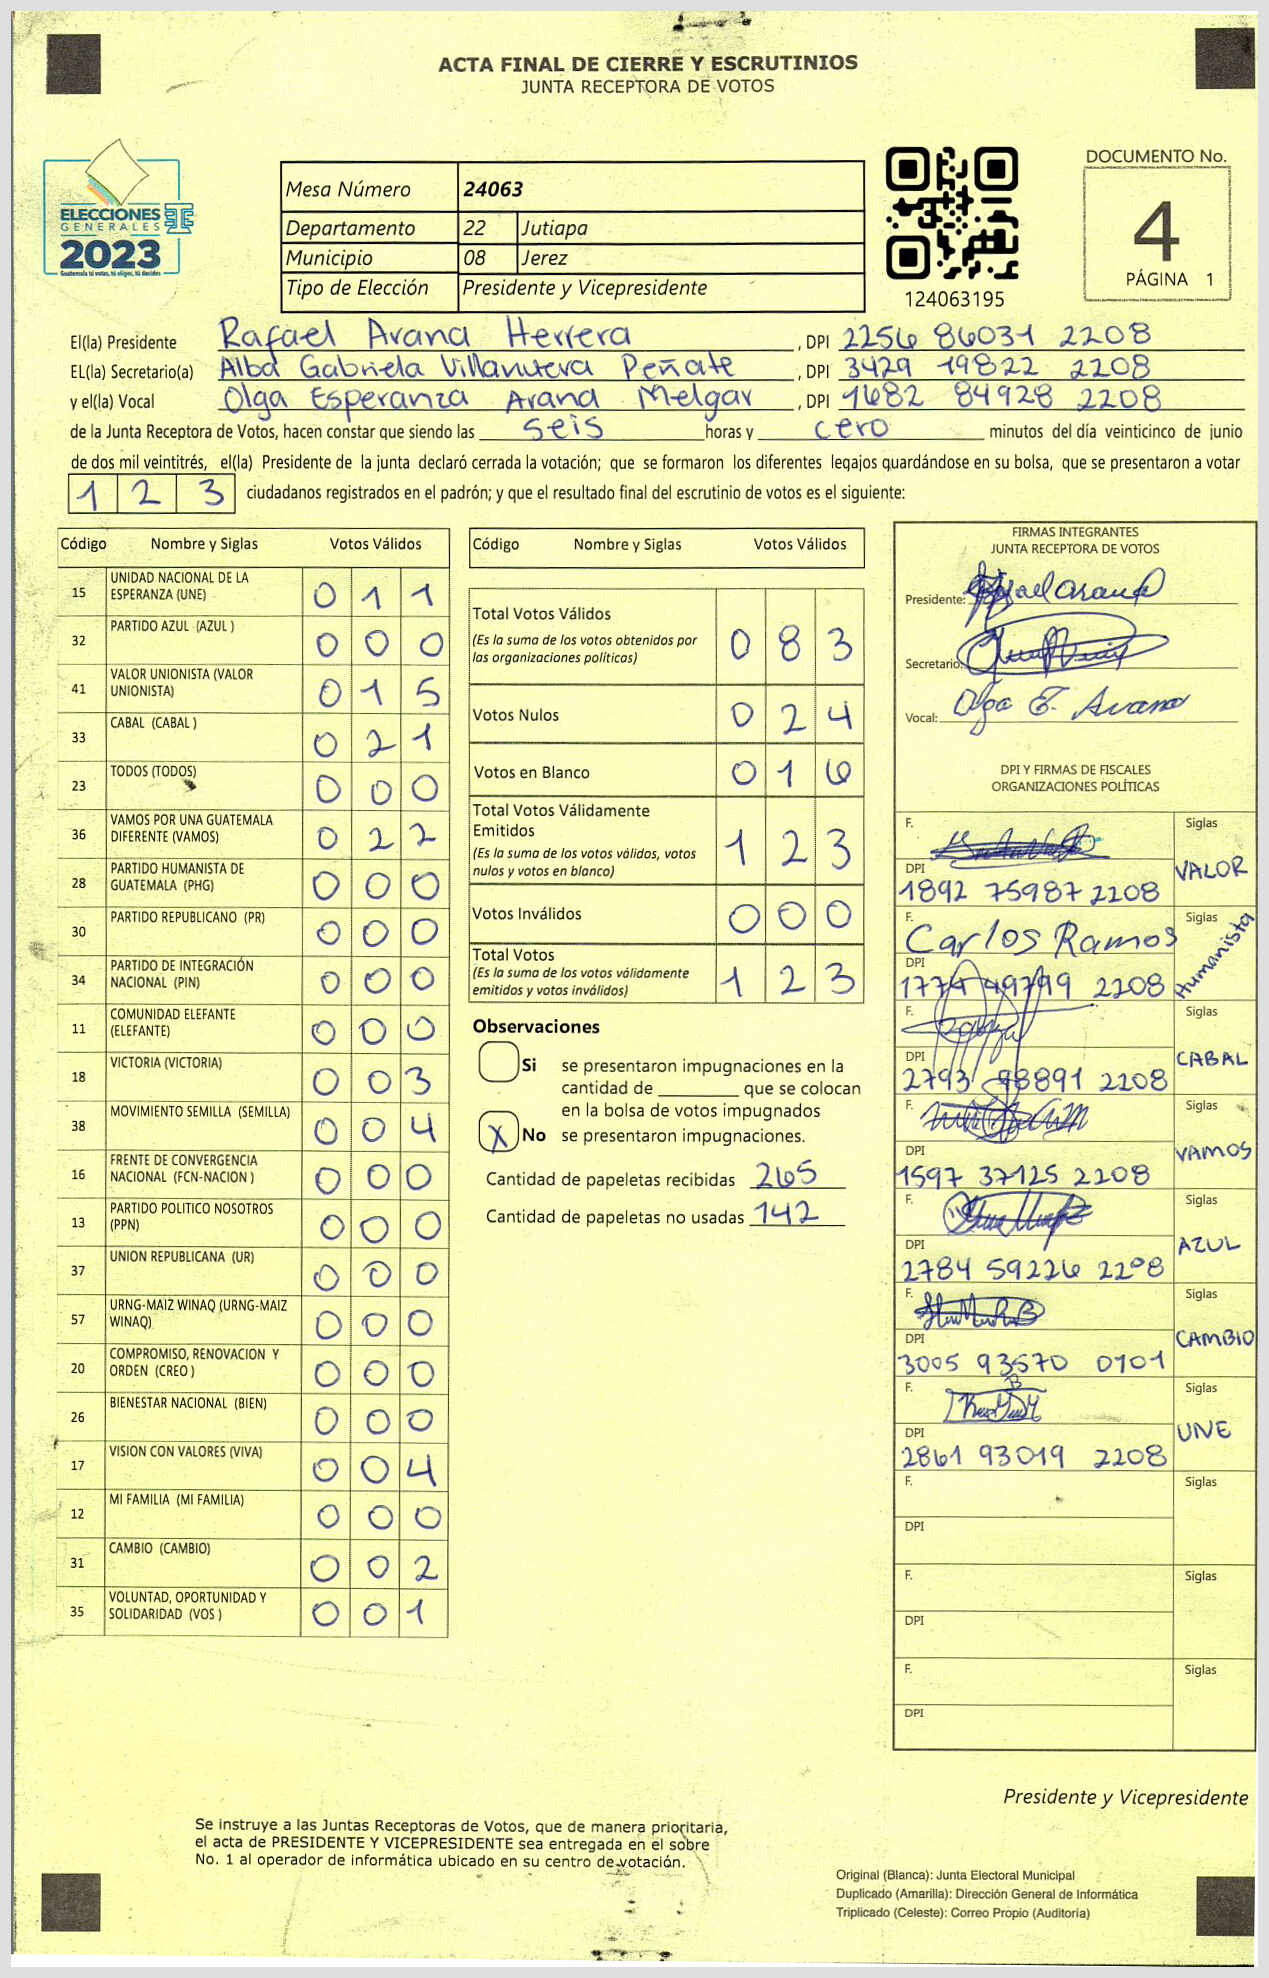 ACTA FINAL DE CIERRE Y ESCRUTINIOS
JUNTA RECEPTORA DE VOTOS
ELECCIONES
GENERALES
2023
Guatemala tú votas, tú eliges, tú decides
Mesa Número 24063
Departamento 22 Jutiapa
Municipio 08 Jerez
Tipo de Elección Presidente y Vicepresidente
124063195
DOCUMENTO No.
4
PÁGINA 1
El(la) Presidente Rafael Arana Herrera, DPI 2256 86031 2208
EL(la) Secretario(a) Alba Gabriela Villanueva Peñate, DPI 3429 19822 2208
y el(la) Vocal Olga Esperanza Arana Melgar, DPI 1682 84928 2208
de la Junta Receptora de Votos, hacen constar que siendo las seis horas y cero minutos del día veinticinco de junio
de dos mil veintitrés, el(la) Presidente de la junta declaró cerrada la votación; que se formaron los diferentes legajos guardándose en su bolsa, que se presentaron a votar
1 2 3 ciudadanos registrados en el padrón; y que el resultado final del escrutinio de votos es el siguiente:
Código Nombre y Siglas Votos Válidos
15 UNIDAD NACIONAL DE LA ESPERANZA (UNE) 0 1 1
32 PARTIDO AZUL (AZUL ) 0 0 0
41 VALOR UNIONISTA (VALOR UNIONISTA) 0 1 5
33 CABAL (CABAL ) 0 2 1
23 TODOS (TODOS) 0 0 0
36 VAMOS POR UNA GUATEMALA DIFERENTE (VAMOS) 0 2 2
28 PARTIDO HUMANISTA DE GUATEMALA (PHG) 0 0 0
30 PARTIDO REPUBLICANO (PR) 0 0 0
34 PARTIDO DE INTEGRACIÓN NACIONAL (PIN) 0 0 0
11 COMUNIDAD ELEFANTE (ELEFANTE) 0 0 0
18 VICTORIA (VICTORIA) 0 0 3
38 MOVIMIENTO SEMILLA (SEMILLA) 0 0 4
16 FRENTE DE CONVERGENCIA NACIONAL (FCN-NACION ) 0 0 0
13 PARTIDO POLITICO NOSOTROS (PPN) 0 0 0
37 UNION REPUBLICANA (UR) 0 0 0
57 URNG-MAIZ WINAQ (URNG-MAIZ WINAQ) 0 0 0
20 COMPROMISO, RENOVACION Y ORDEN (CREO ) 0 0 0
26 BIENESTAR NACIONAL (BIEN) 0 0 0
17 VISION CON VALORES (VIVA) 0 0 4
12 MI FAMILIA (MI FAMILIA) 0 0 0
31 CAMBIO (CAMBIO) 0 0 2
35 VOLUNTAD, OPORTUNIDAD Y SOLIDARIDAD (VOS ) 0 0 1
Código Nombre y Siglas Votos Válidos
Total Votos Válidos 0 8 3
(Es la suma de los votos obtenidos por
las organizaciones políticas)
Votos Nulos 0 2 4
Votos en Blanco 0 1 6
Total Votos Válidamente
Emitidos 1 2 3
(Es la suma de los votos válidos, votos
nulos y votos en blanco)
Votos Inválidos 0 0 0
Total Votos 1 2 3
(Es la suma de los votos válidamente
emitidos y votos inválidos)
Observaciones
Si se presentaron impugnaciones en la
cantidad de ________ que se colocan
en la bolsa de votos impugnados
X No se presentaron impugnaciones.
Cantidad de papeletas recibidas 265
Cantidad de papeletas no usadas 142
FIRMAS INTEGRANTES
JUNTA RECEPTORA DE VOTOS
Presidente:
Secretario:
Vocal: Olga E. Arana
DPI Y FIRMAS DE FISCALES
ORGANIZACIONES POLÍTICAS
F. Siglas
DPI VALOR
1892 75987 2208
F. Carlos Ramos Siglas
DPI Humanista
1774 49799 2208
F. Siglas
DPI CABAL
2793 98891 2208
F. Siglas
DPI VAMOS
1597 37125 2208
F. Siglas
DPI AZUL
2784 59226 2208
F. Siglas
DPI CAMBIO
3005 93570 0101
F. Siglas
DPI UNE
2861 93019 2208
F. Siglas
DPI
F. Siglas
DPI
F. Siglas
DPI
Presidente y Vicepresidente
Se instruye a las Juntas Receptoras de Votos, que de manera prioritaria,
el acta de PRESIDENTE Y VICEPRESIDENTE sea entregada en el sobre
No. 1 al operador de informática ubicado en su centro de votación.
Original (Blanca): Junta Electoral Municipal
Duplicado (Amarilla): Dirección General de Informática
Triplicado (Celeste): Correo Propio (Auditoría)